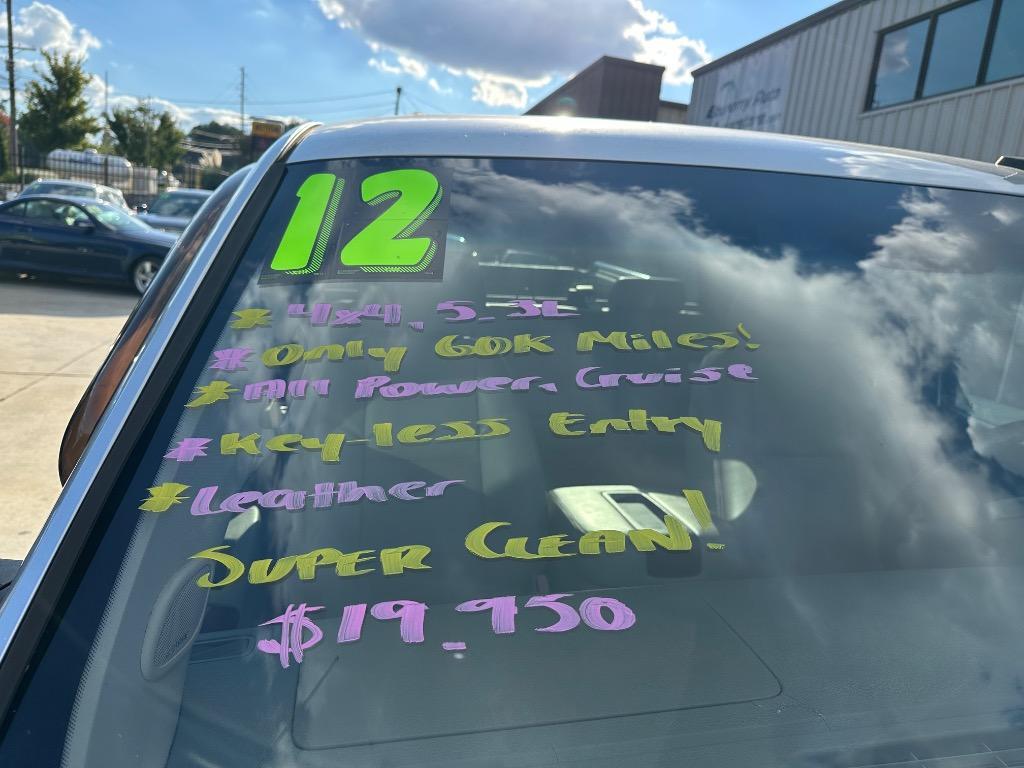 12
* 4x4, 5.3L
* Only 60K Miles!
* All Power, Cruise
* Key-less Entry
* Leather
Super Clean!
$19,950